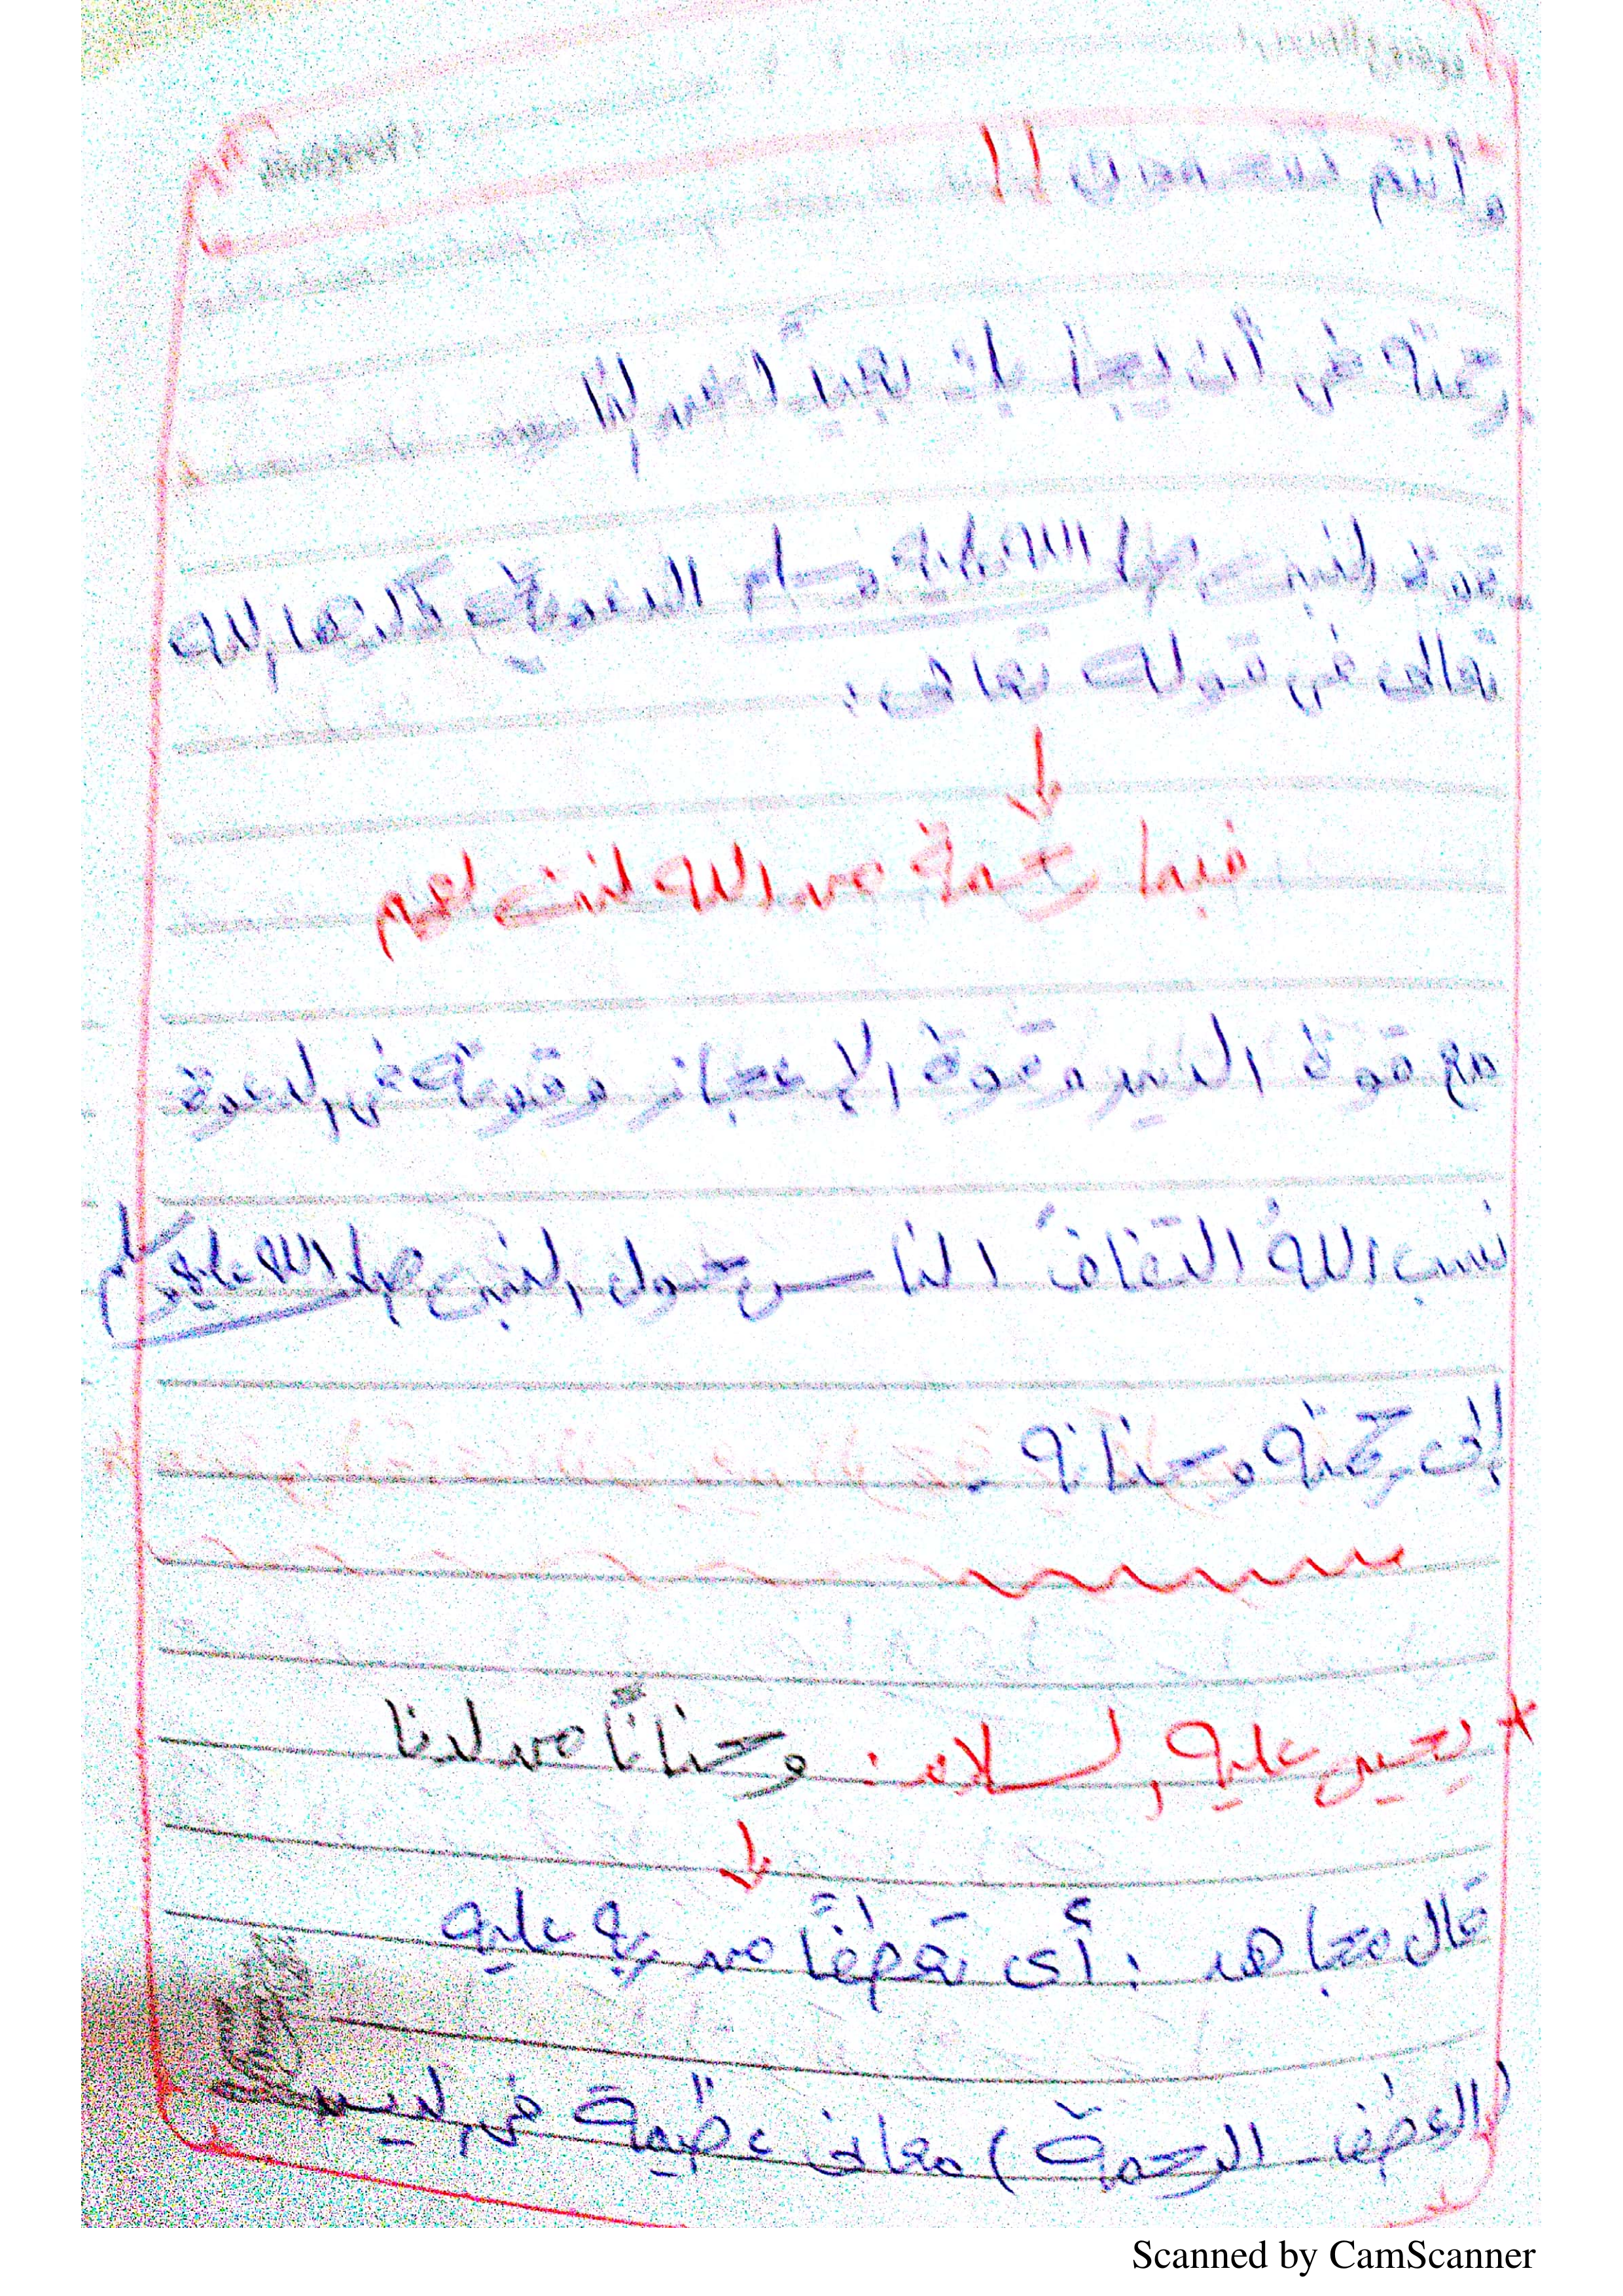 وأنتم تسمعون !!
رحمته في أن يجتبك نبيًا مرسلًا
قوة النبي صلى الله عليه وسلم الدعوية كللها الله
تعالى في قوله تعالى :
فبما رحمة من الله لنت لهم
مع قوة الدين وقوة الإعجاز وقوته في الدعوة
نسب الله التفافَ الناس حول النبي صلى الله عليه وسلم
إلى رحمته وحنانه .
* يحيى عليه السلام : وحنانًا من لدنا
قال مجاهد : أي تعطفًا من ربه عليه
(العطف - الرحمة) معاني عظيمة في ليست
Scanned by CamScanner